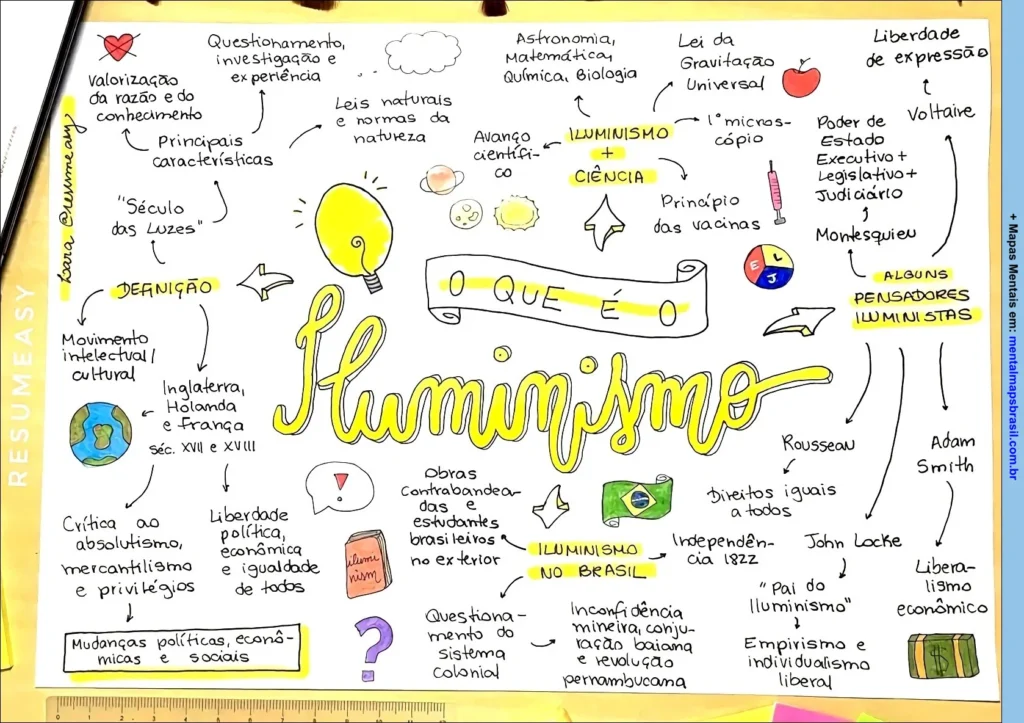 O QUE É O
Iluminismo
DEFINIÇÃO
"Século
das Luzes"
Principais
características
Valorização
da razão e do
conhecimento
Questionamento,
investigação e
experiência
Leis naturais
e normas da
natureza
Movimento
intelectual/
cultural
Inglaterra,
Holanda
e França
séc. XVII e XVIII
Crítica ao
absolutismo,
mercantilismo
e privilégios
Liberdade
política,
econômica
e igualdade
de todos
Mudanças políticas, econô-
micas e sociais
ILUMINISMO
+
CIÊNCIA
Avanço
científi-
co
Astronomia,
Matemática,
Química, Biologia
Lei da
Gravitação
Universal
1º micros-
cópio
Princípio
das vacinas
ALGUNS
PENSADORES
ILUMINISTAS
Montesquieu
Poder de
Estado
Executivo +
Legislativo +
Judiciário
E L
J
Voltaire
Liberdade
de expressão
Rousseau
Direitos iguais
a todos
John Locke
"Pai do
Iluminismo"
Empirismo e
individualismo
liberal
Adam
Smith
Libera-
lismo
econômico
$
ILUMINISMO
NO BRASIL
Obras
contrabandea-
das e
estudantes
brasileiros
no exterior
Independên-
cia 1822
Questiona-
mento do
sistema
colonial
Inconfidência
mineira, conju-
ração baiana
e revolução
pernambucana
!
ilumi
nism
?
Lara @resumeasy
RESUMEASY
+ Mapas Mentais em: mentalmapsbrasil.com.br